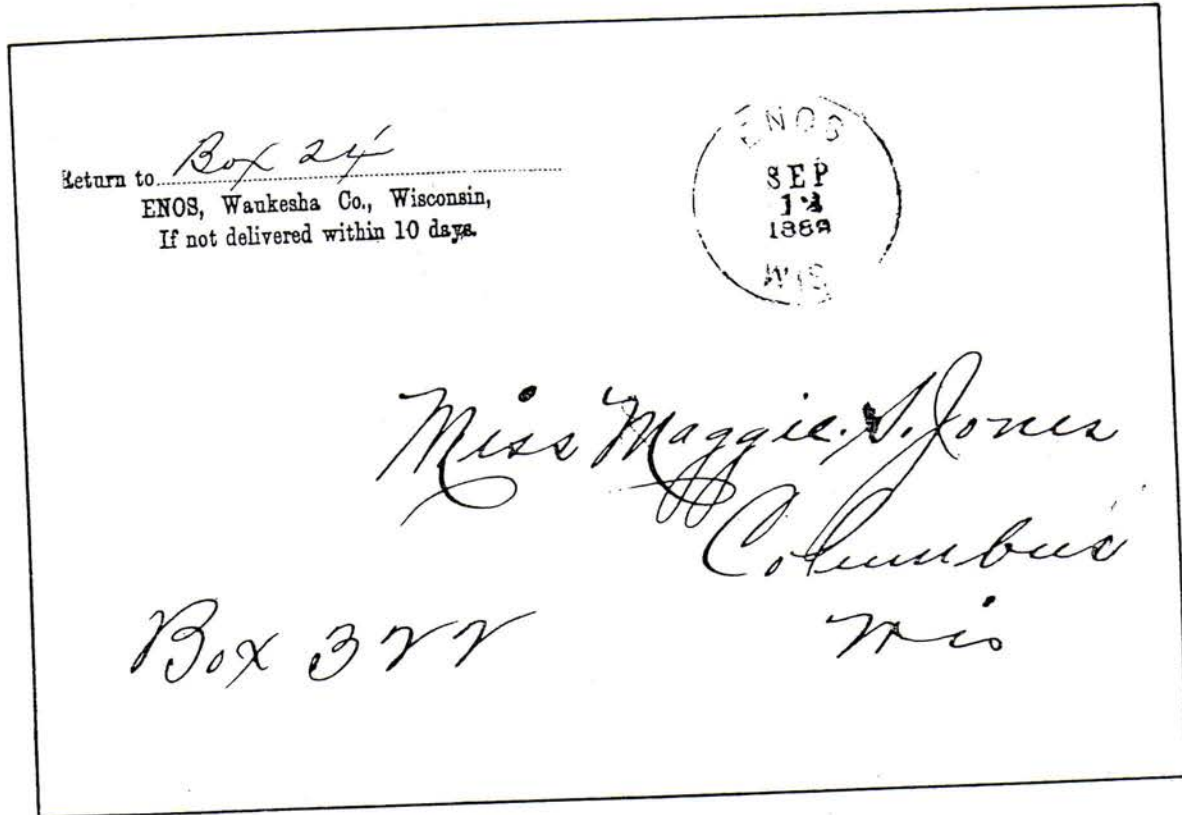 Return to Box 24
ENOS, Waukesha Co., Wisconsin,
If not delivered within 10 days.
ENOS
SEP
WIS
Miss Maggie. S. Jones
Columbus
Wis
Box 322